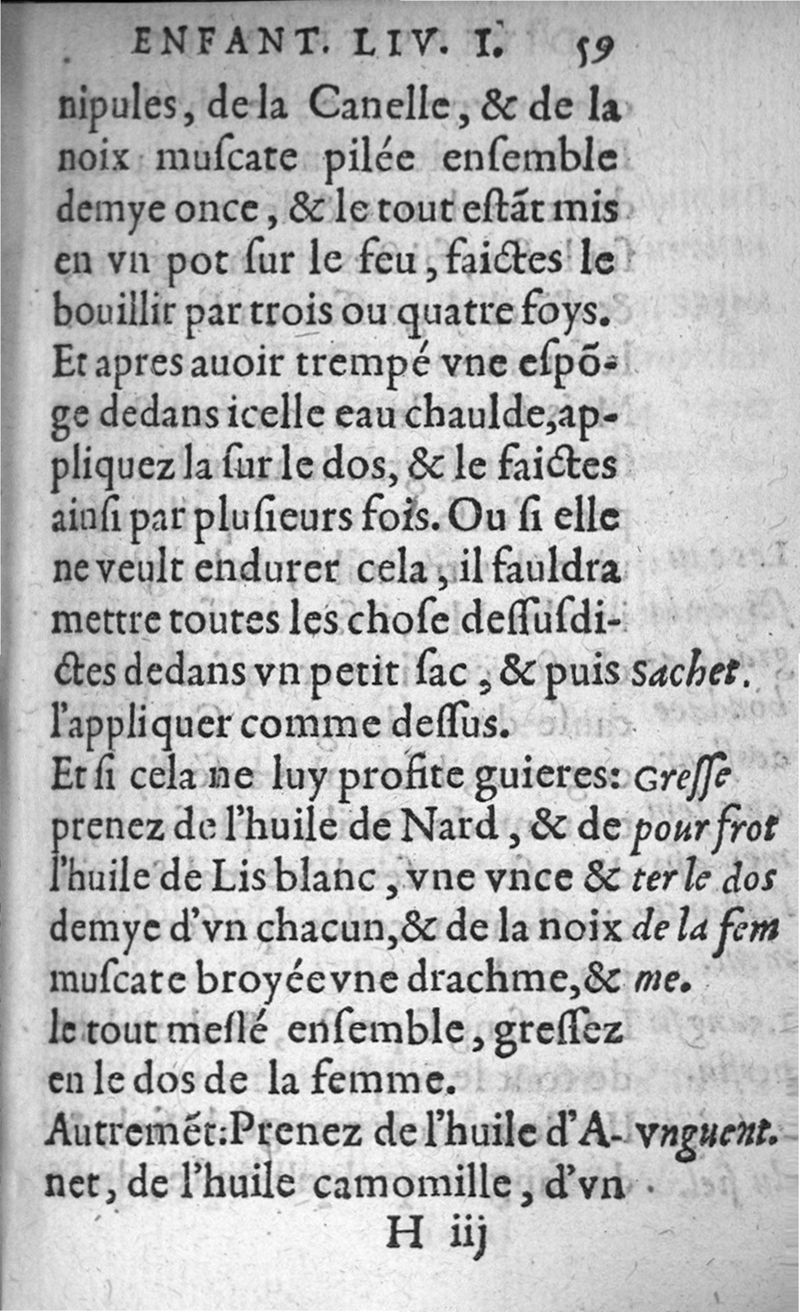 ENFANT. LIV. I. 59
nipules, de la Canelle, & de la
noix muſcate pilée enſemble
demye once, & le tout eſtãt mis
en vn pot ſur le feu, faictes le
bouillir par trois ou quatre foys.
Et apres auoir trempé vne eſpõ-
ge dedans icelle eau chaulde, ap-
pliquez la ſur le dos, & le faictes
ainſi par pluſieurs fois. Ou ſi elle
ne veult endurer cela, il fauldra
mettre toutes les choſe deſſuſdi-
ctes dedans vn petit ſac, & puis Sachet.
l'appliquer comme deſſus.
Et ſi cela ne luy profite guieres: Greſſe
prenez de l'huile de Nard, & de pour frot
l'huile de Lis blanc, vne vnce & ter le dos
demye d'vn chacun, & de la noix de la fem
muſcate broyée vne drachme, & me.
le tout meſlé enſemble, greſſez
en le dos de la femme.
Autremẽt: Prenez de l'huile d'A- Vnguent.
net, de l'huile camomille, d'vn
H iij